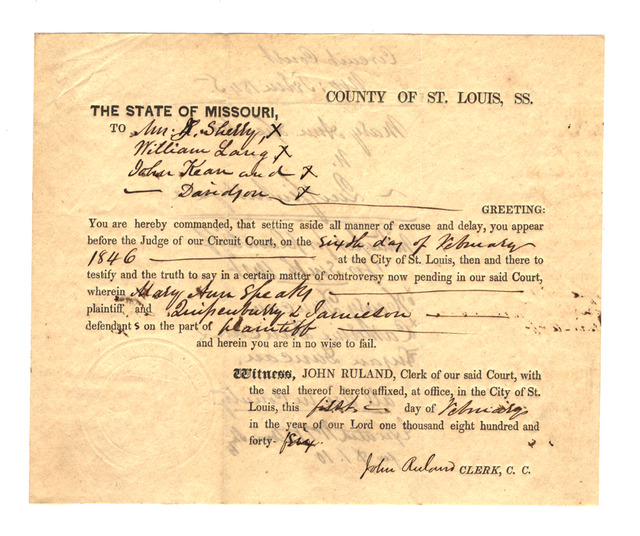 COUNTY OF ST. LOUIS, SS.
THE STATE OF MISSOURI,
TO Mrs. Shelly, X
William Lang, X
John Kean and X
— Davidson X
GREETING:
You are hereby commanded, that setting aside all manner of excuse and delay, you appear
before the Judge of our Circuit Court, on the sixth day of February
1846 — at the City of St. Louis, then and there to
testify and the truth to say in a certain matter of controversy now pending in our said Court,
wherein Mary Ann Speaks —
plaintiff and & Jamieson —
defendants on the part of plaintiff —
and herein you are in no wise to fail.
Witness, JOHN RULAND, Clerk of our said Court, with
the seal thereof hereto affixed, at office, in the City of St.
Louis, this fifth day of February
in the year of our Lord one thousand eight hundred and
forty-six.
John Ruland CLERK, C. C.